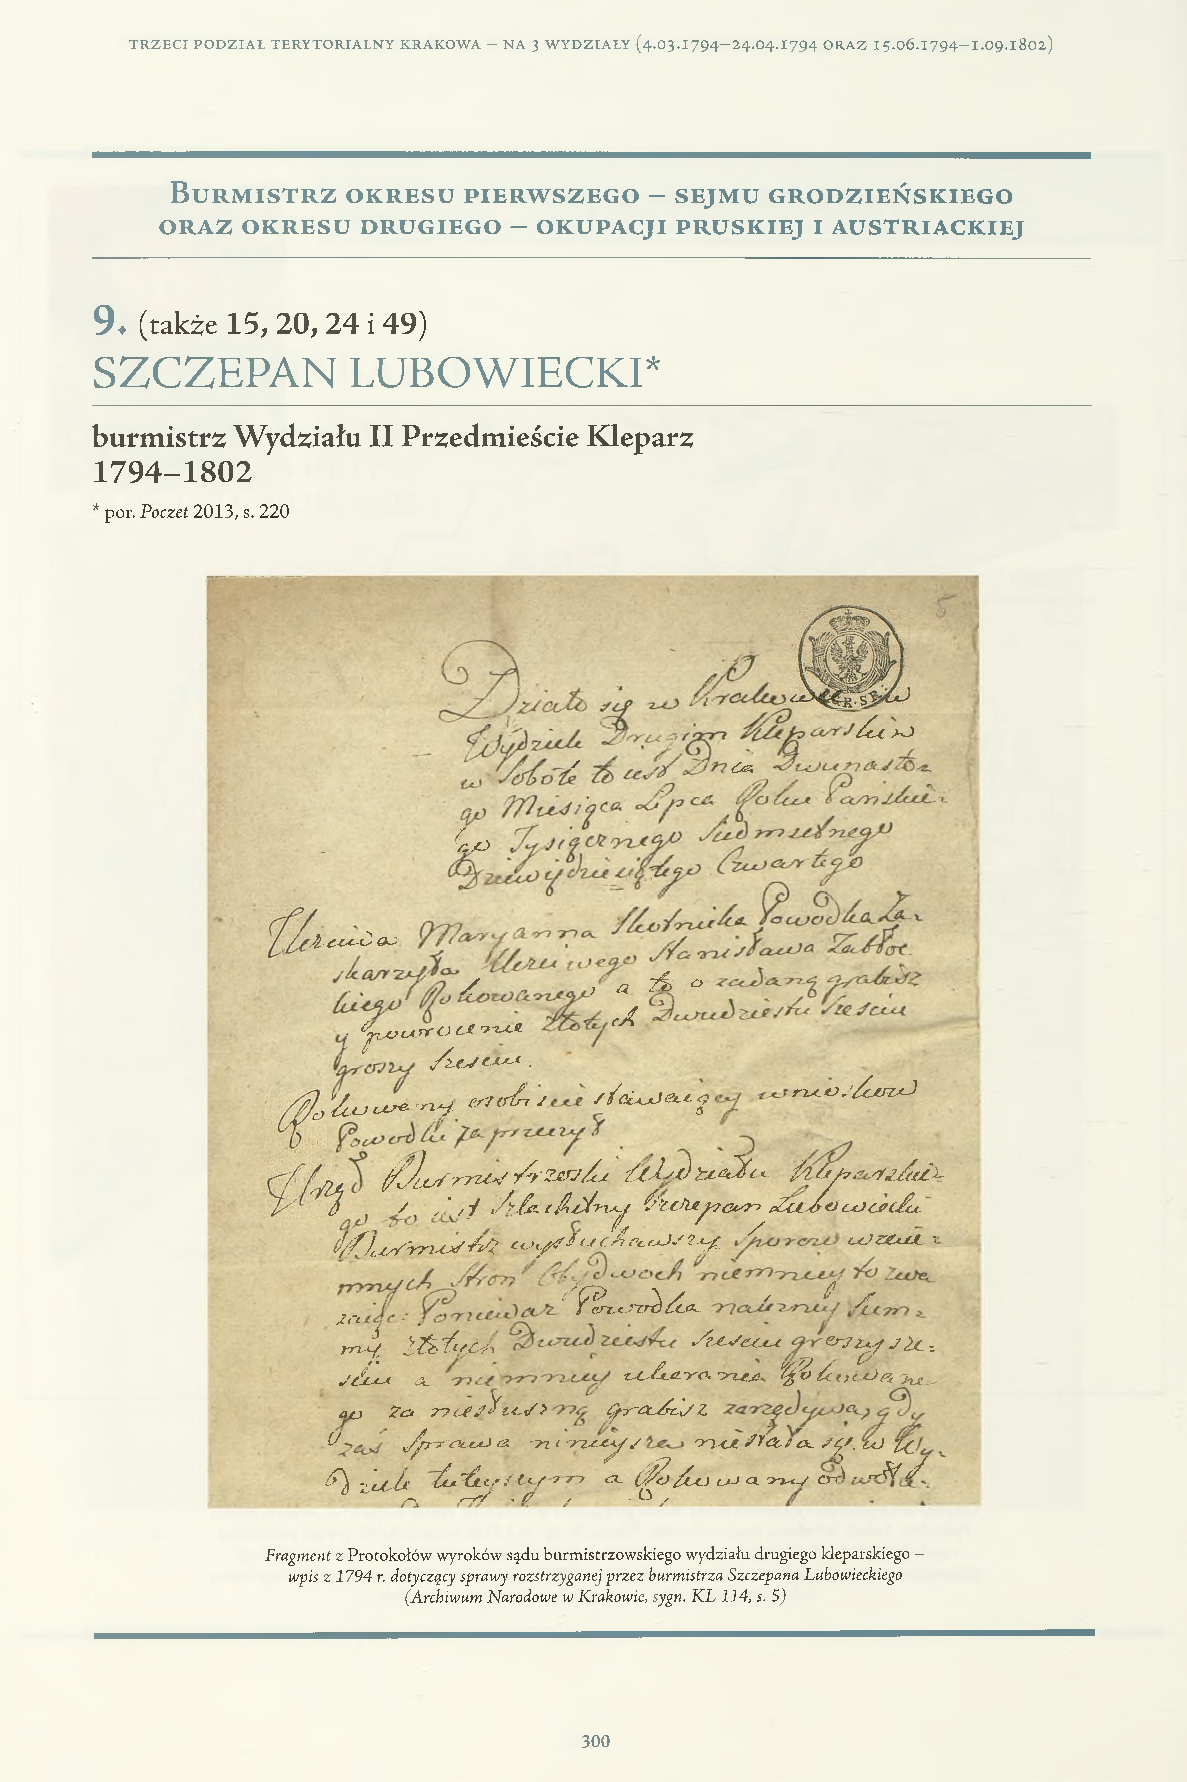 TRZECI PODZIAŁ TERYTORIALNY KRAKOWA – NA 3 WYDZIAŁY (4.03.1794–24.04.1794 ORAZ 15.06.1794–1.09.1802)
BURMISTRZ OKRESU PIERWSZEGO – SEJMU GRODZIEŃSKIEGO
ORAZ OKRESU DRUGIEGO – OKUPACJI PRUSKIEJ I AUSTRIACKIEJ
9. (także 15, 20, 24 i 49)
SZCZEPAN LUBOWIECKI*
burmistrz Wydziału II Przedmieście Kleparz
1794–1802
* por. Poczet 2013, s. 220
5
Działo się w Krakowie w
Wydziele Drugim Kleparskim
w Sobotę to iest Dnia Dwunaste-
go Miesiąca Lipca Roku Pańskie-
go Tysiącznego Siedmsetnego
Dziewiędziesiątego Czwartego
Uczciwa Maryanna Skotnicka Powodka Za-
skarzyła Uczciwego Stanisława Zabłoc
kiego Pozwanego a to o zadaną grabisz
y powrocenie Złotych Dwudziestu Szesciu
groszy Szesciu.
osobiscie stawaiący wnioskow
Powodki zaprzeczył
Urząd Burmistrzoski Wydziału Kleparskie-
go to iest Szlachetny Szczepan Lubowiecki
Burmistrz wysłuchawszy Sporow wzaie-
mnych Stron Obydwoch niemniey to zwa
zaiąc: Poniewaz Powodka nalezney Sum-
my Złotych Dwudziestu Szesciu groszy sze-
sciu a niemniey
go za niesłuszną grabisz gdy
zaś Sprawa ninieysza niestała się w Wy-
dziele tuteyszym a
Fragment z Protokołów wyroków sądu burmistrzowskiego wydziału drugiego kleparskiego –
wpis z 1794 r. dotyczący sprawy rozstrzyganej przez burmistrza Szczepana Lubowieckiego
(Archiwum Narodowe w Krakowie, sygn. KL 114, s. 5)
300